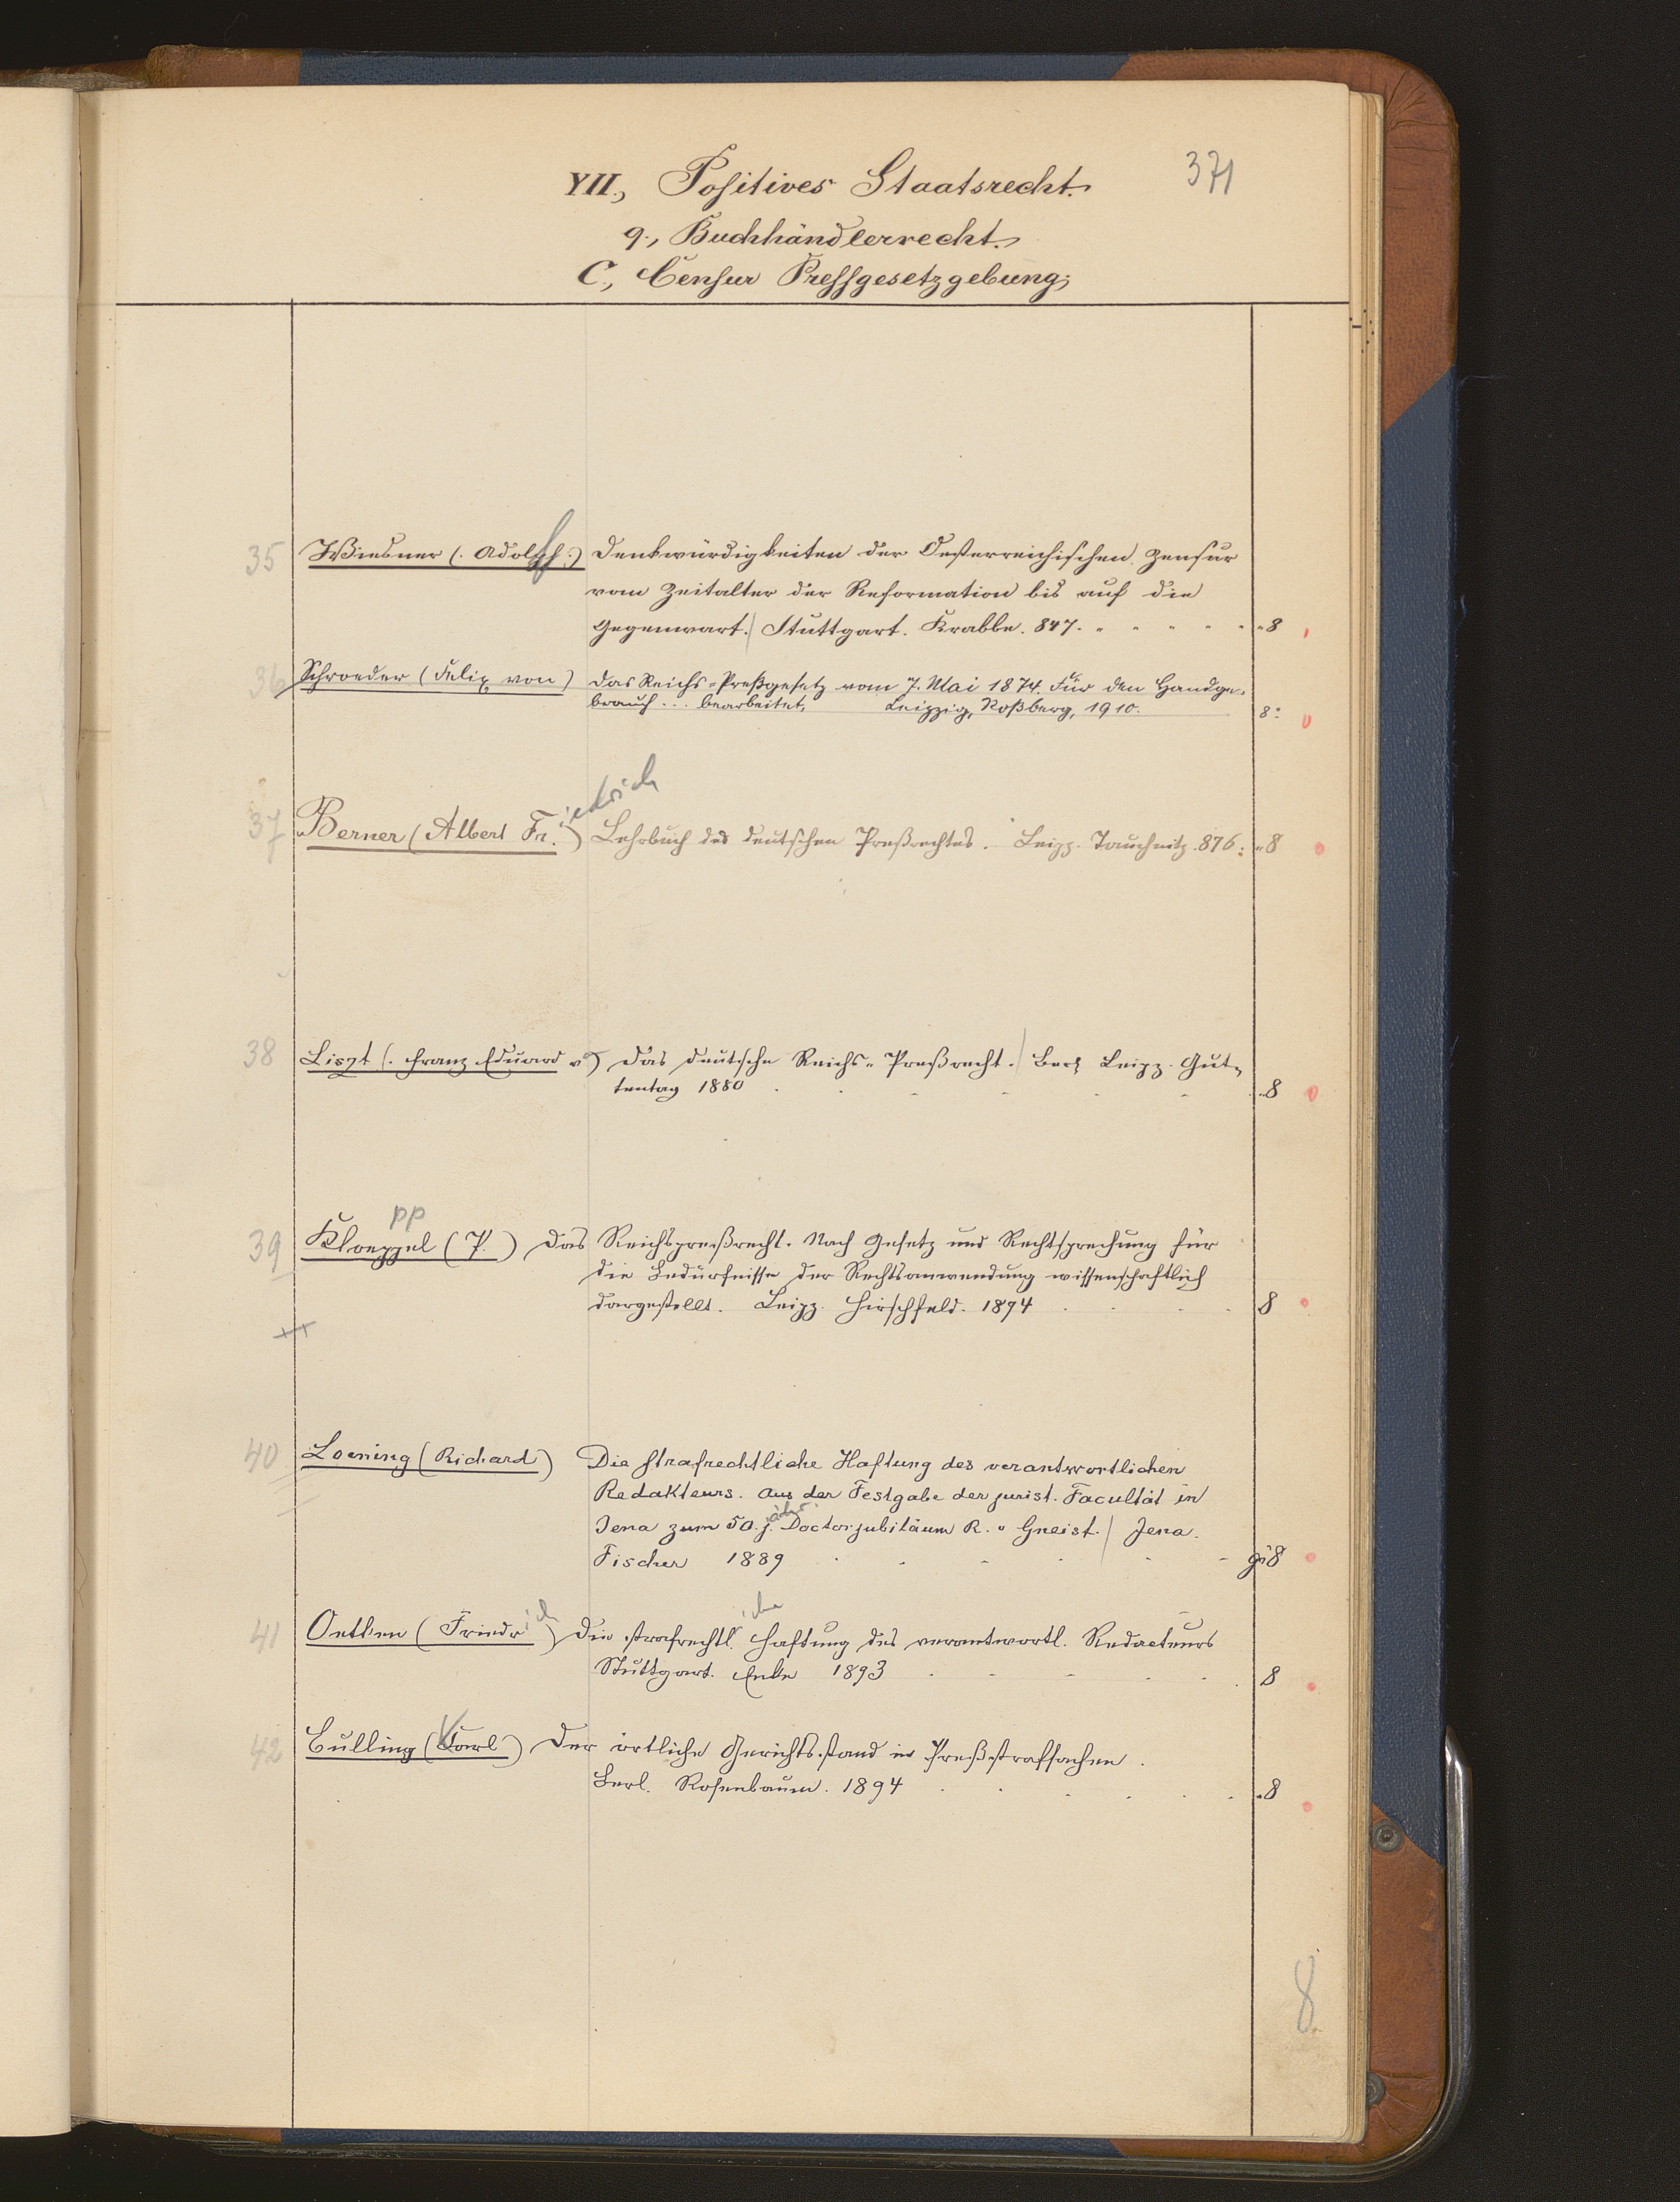 371
VII., Positives Staatsrecht.
9., Buchhändlerrecht.
C., Censur Pressgesetzgebung;
35 Wiesner (. Adolf .) Denkwürdigkeiten der Oesterreichischen Zensur
vom Zeitalter der Reformation bis auf die
Gegenwart. | Stuttgart. Krabbe. 847. 8
36 Schroeder (Felix von) Das Reichs-Preßgesetz vom 7. Mai 1874. Für den Handge-
brauch... bearbeitet, Leipzig, Roßberg, 1910. 8°
37 Berner (Albert Friedrich) Lehrbuch des deutschen Preßrechtes. Leipz. Tauchnitz. 876. 8
38 Liszt (. Franz Eduard v) Das deutsche Reichs-Preßrecht. | Berl Leipz. Gut-
tentag 1880 8
39 Kloeppel (P.) Das Reichspreßrecht. Nach Gesetz und Rechtsprechung für
pp
die Bedürfnisse der Rechtsanwendung wissenschaftlich
dargestellt. Leipz. Hirschfeld. 1894 8
40 Loening (Richard) Die strafrechtliche Haftung des verantwortlichen
Redakteurs. Aus der Festgabe der jurist. Facultät in
Jena zum 50. jähr. Doctorjubiläum R. v Gneist. | Jena.
Fischer 1889 gr 8
41 Oetker (Friedrich) Die strafrechtliche Haftung des verantwortl. Redacteurs
Stuttgart. Enke 1893 8
42 Bulling (Karl) Der örtliche Gerichtsstand in Preßstrafsachen.
Berl. Rosenbaum. 1894 8
8